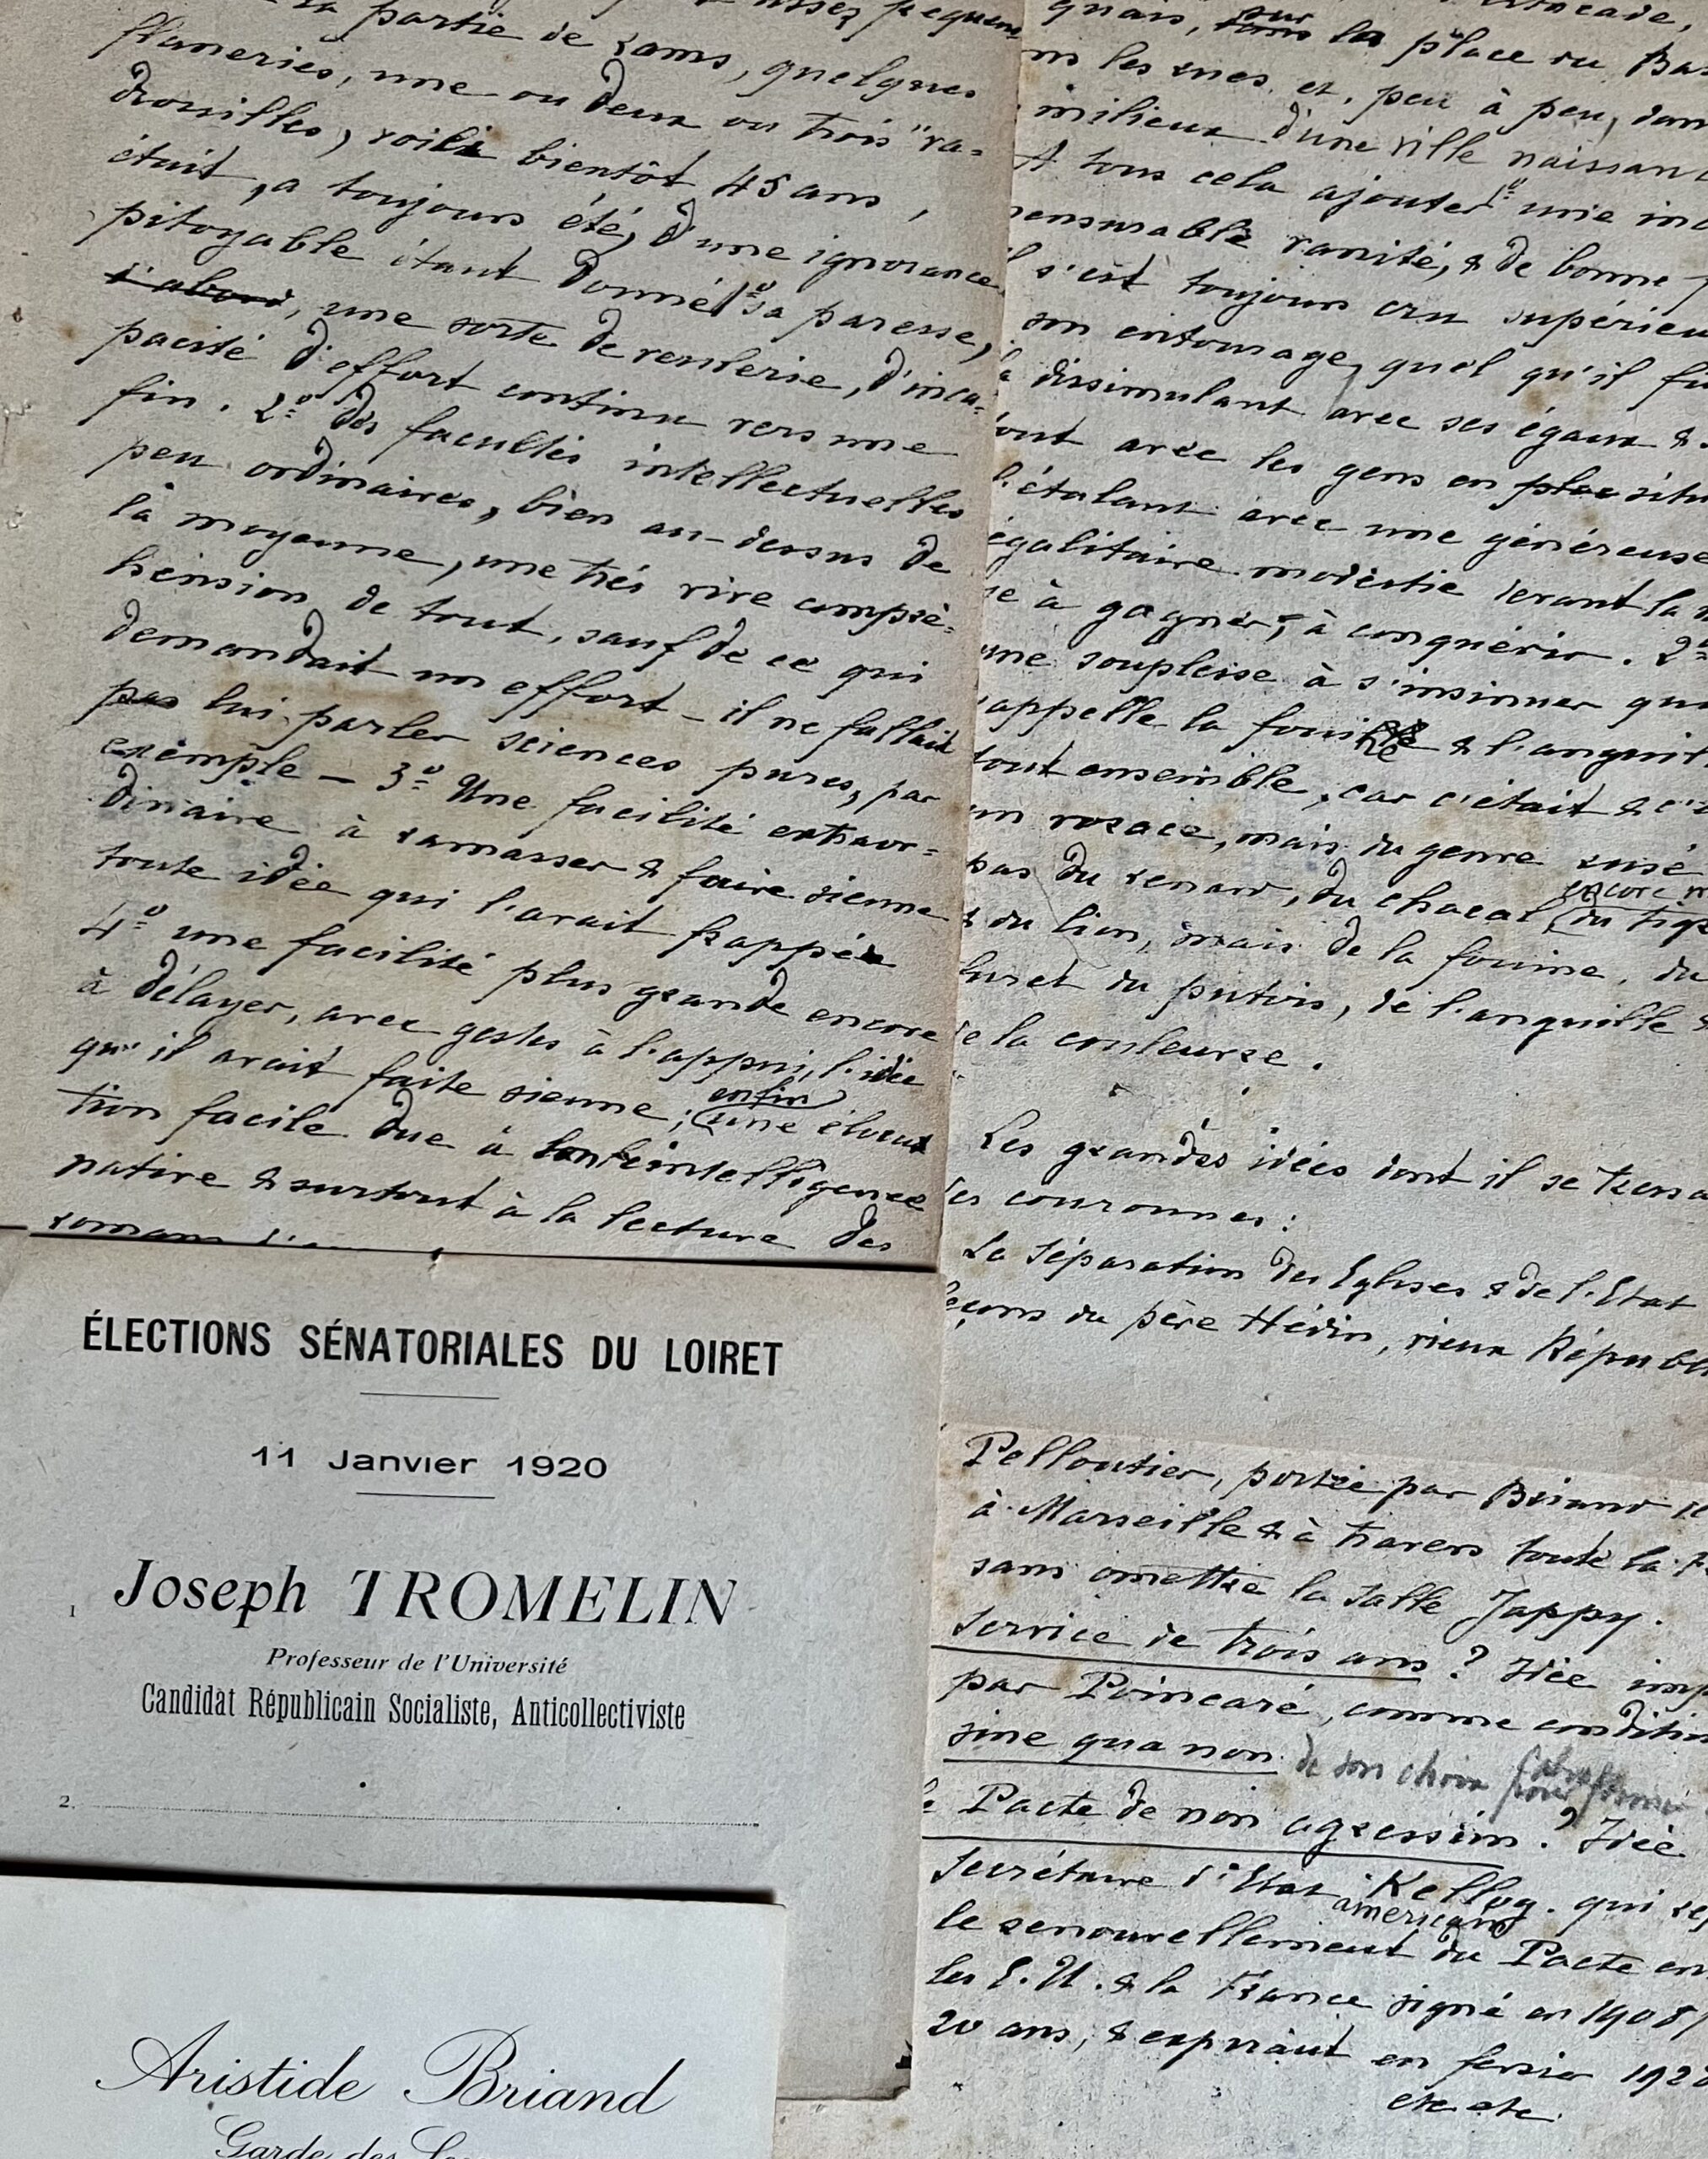 la partie de rams, quelques
flaneries, une ou deux ou trois "va-
drouilles, voilà bientôt 45 ans,
était, a toujours été, d'une ignorance
pitoyable étant donné 1º sa paresse,
d'abord, une sorte de veulerie, d'inca-
pacité d'effort continu vers une
fin. 2º des facultés intellectuelles
peu ordinaires, bien au-dessus de
la moyenne, une très vive compré-
hension de tout, sauf de ce qui
demandait un effort - il ne fallait
pas lui parler sciences pures, par
exemple - 3º Une facilité extraor-
dinaire à ramasser & faire sienne
toute idée qui l'avait frappée
4º une facilité plus grande encore
à délayer, avec gestes à l'appui, l'idée
qu'il avait faite sienne; enfin une élocu
tion facile due à son intelligence
native & surtout à la lecture des
romans
quais, sur la place du
les rues et, peu à peu, dans
milieux d'une ville naissan
A tous cela ajouter 1º une in
mensurable vanité, & de bonne
s'est toujours cru supérieu
son entourage, quel qu'il fu
dissimulant avec ses égaux &
out avec les gens en plac situ
l'étalant avec une généreuse
égalitaire modestie devant la
se à gagner, à conquérir. 2º
une souplesse à s'insinuer qu
rappelle la fouine & l'anguil
tout ensemble, car c'était & c'
un rosace, mais du genre rusé
pas du renard, du chacal, encore du tig
& du lion, mais de la fouine, du
furet du putois, de l'anguille &
de la couleuvre.
Les grandes idées dont il se tress
des couronnes:
La séparation des Eglises & de l'Etat
leçons du père Hédin, vieux Républ
Pelloutier, portée par Briand
à Marseille & à travers toute la
sans omettre la salle Jappy.
service de trois ans? Idée imp
par Poincaré, comme condition
sine qua non de son choix pour former
le Pacte de non agression? Idée
secrétaire d'Etat américain Kellog. qui
le renouvellement du Pacte en
les E.U. & la France signé en 1908
20 ans, & expirant en février 192
etc etc
ÉLECTIONS SÉNATORIALES DU LOIRET
11 Janvier 1920
1 Joseph TROMELIN
Professeur de l'Université
Candidat Républicain Socialiste, Anticollectiviste
2.
Aristide Briand
Garde des